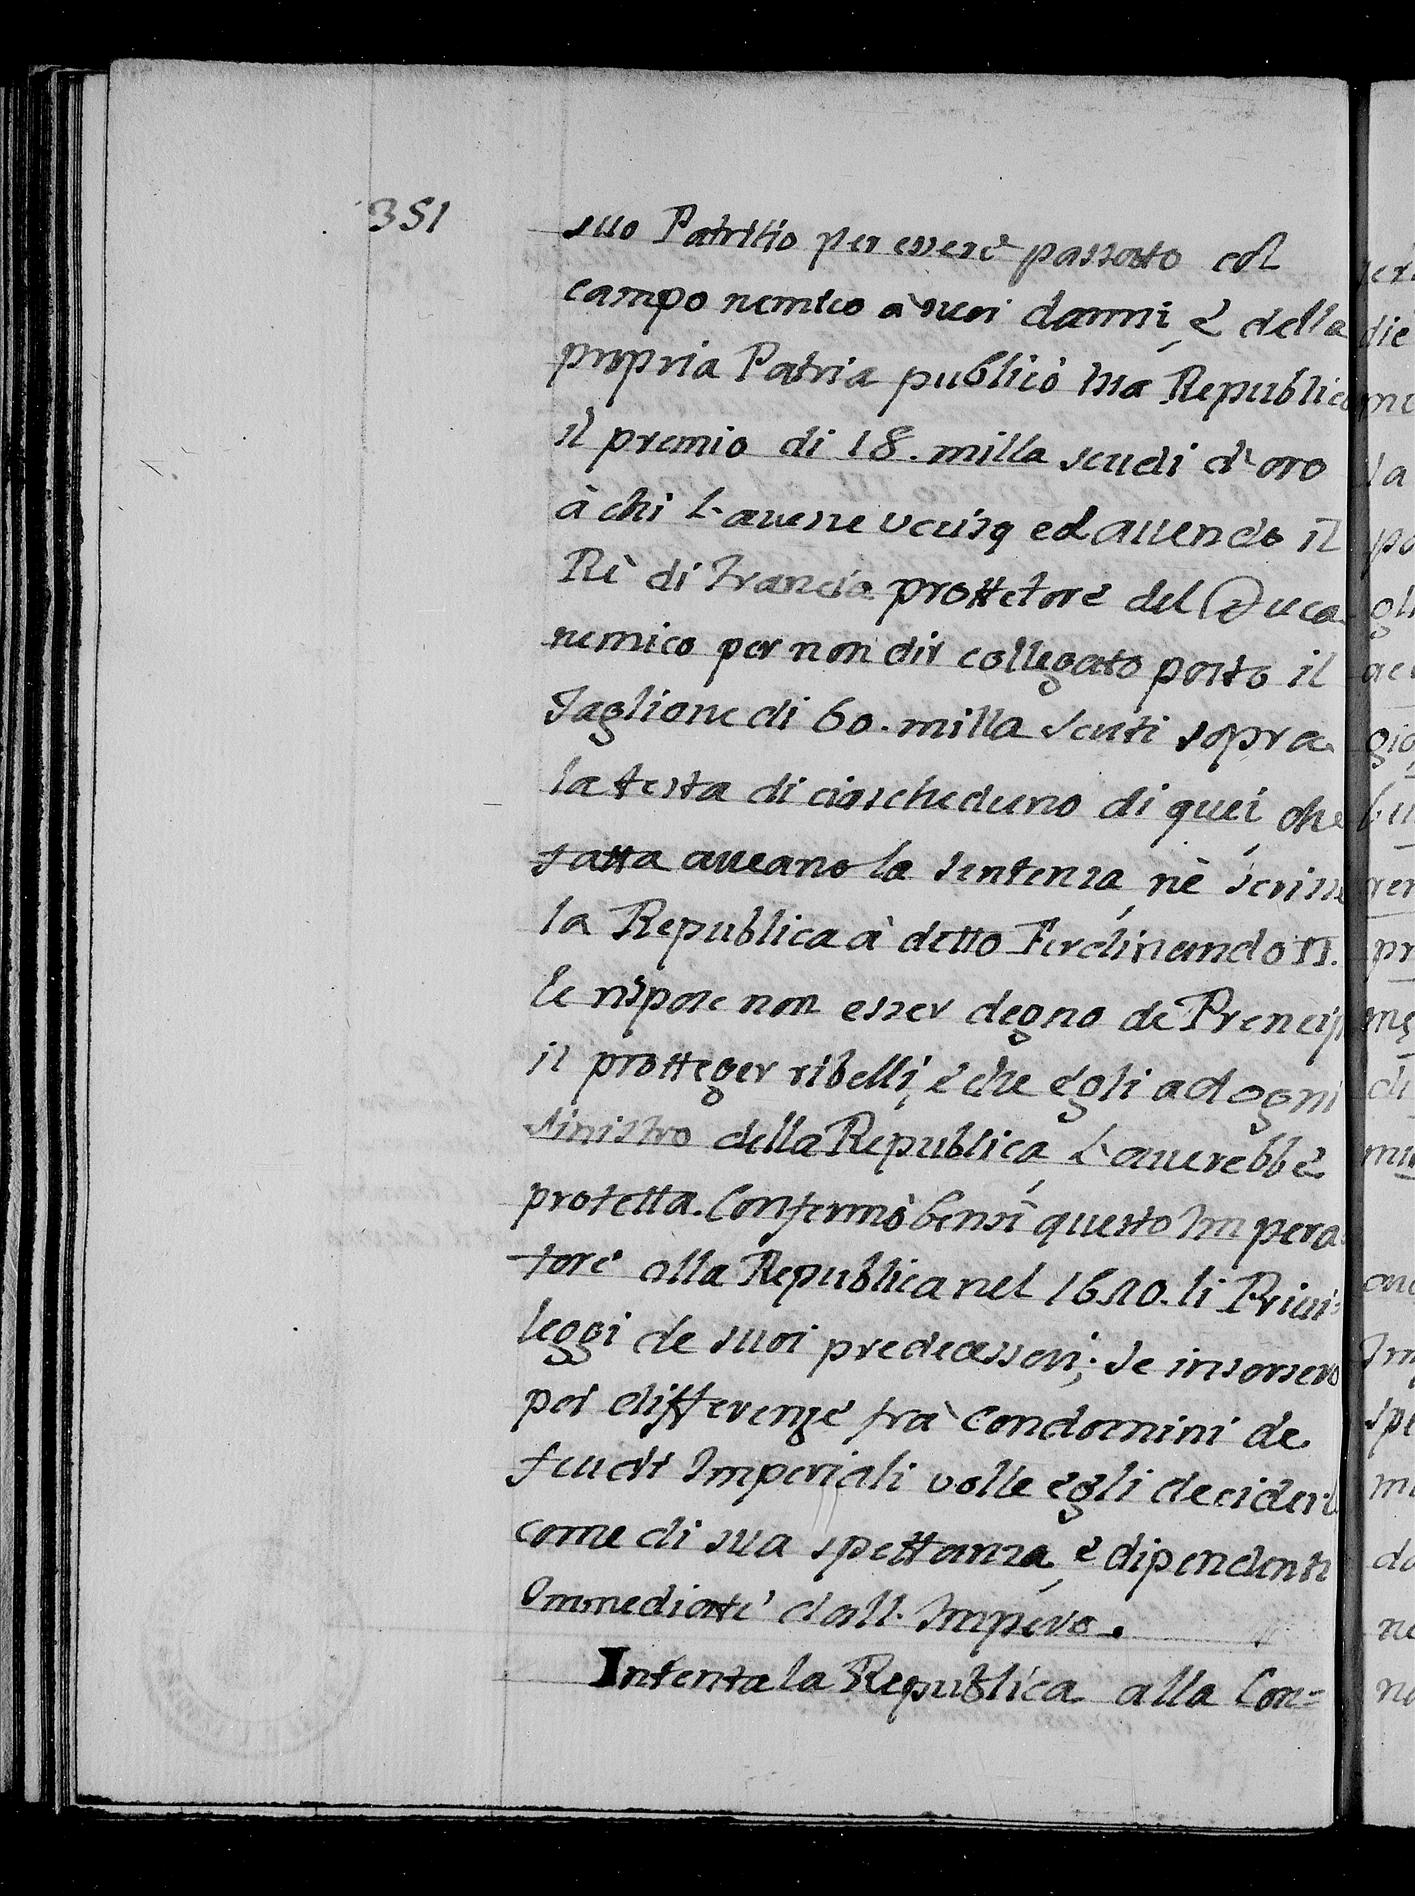 351
suo Patritio per essere passato col
campo nemico à suoi danni, è della
propria Patria publicò Republica
il premio di 18. milla scudi d'oro
à chi l'auesse ucciso, ed auendo il
Rè di Francia prottetore del Duca
nemico per non dir collegato posto il
Taglione di 60. milla scuti sopra
la testa di ciascheduno di quei, che
fatta aueano la sentenza, nè scrisse
la Republica à detto Ferdinando II.
le rispose non esser degno de Prencip
il protteger ribelli, è che egli ad ogni
Sinistro della Republica, l'auerebbe
protetta. Confermò bensì questo Impera
tore alla Republica nel li Priui=
leggi de suoi predecessori; se insorsero
poi differenze frà Condomini de
feudi Imperiali volle egli decider
come di sua spettanza, è dipendenti
Immediate dall'Impero.
Intenta la Republica alla Con=